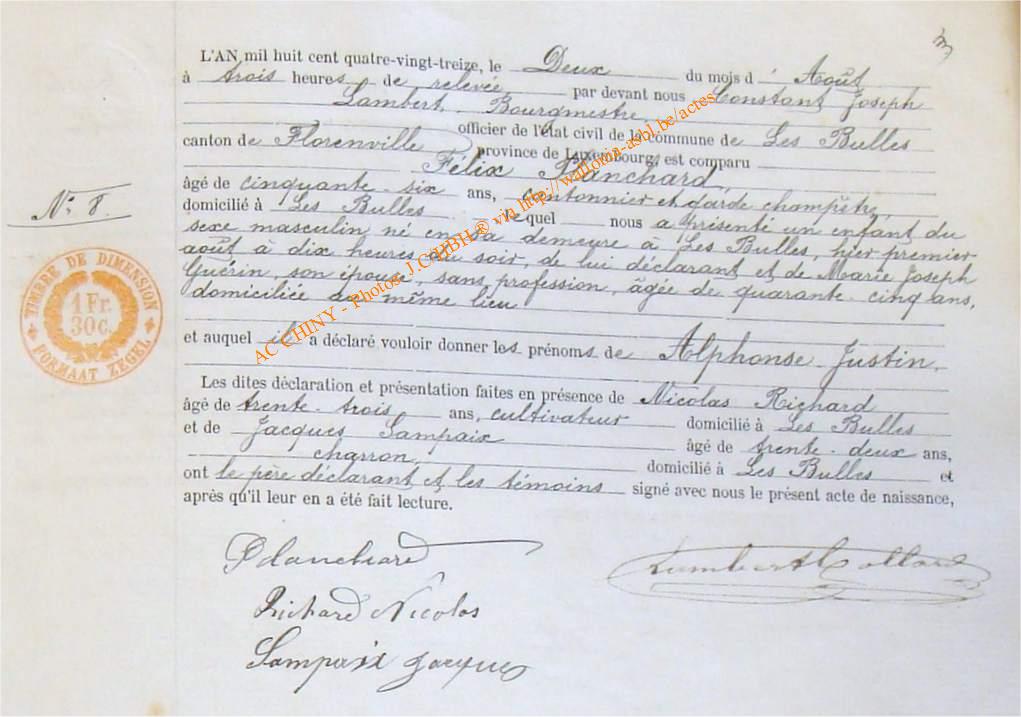 L'AN mil huit cent quatre-vingt-treize, le Deux du mois d' Août
à trois heures de relevée par devant nous Constant Joseph
Lambert, Bourgmestre,
officier de l'état civil de la commune de Les Bulles
canton de Florenville province de Luxembourg, est comparu
Félix Planchard,
âgé de cinquante-six ans, cantonnier et garde champêtre,
domicilié à Les Bulles lequel nous a présenté un enfant du
sexe masculin né en sa demeure à Les Bulles, hier premier
août à dix heures du soir, de lui déclarant et de Marie Joseph
Guérin, son épouse, sans profession, âgée de quarante-cinq ans,
domiciliée au même lieu
et auquel il a déclaré vouloir donner les prénoms de Alphonse Justin.
Les dites déclaration et présentation faites en présence de Nicolas Richard
âgé de trente-trois ans, cultivateur domicilié à Les Bulles
et de Jacques Sampaix âgé de trente-deux ans,
charron, domicilié à Les Bulles et
ont le père déclarant et les témoins signé avec nous le présent acte de naissance,
après qu'il leur en a été fait lecture.
Planchard
Richard Nicolas
Sampaix Jacques
Lambert Collard
N° 8.
TIMBRE DE DIMENSION
1 Fr.
30 c.
FORMAAT ZEGEL
AC CHINY - Photos J.C.HBH ® via http://wallonia-asbl.be/actes